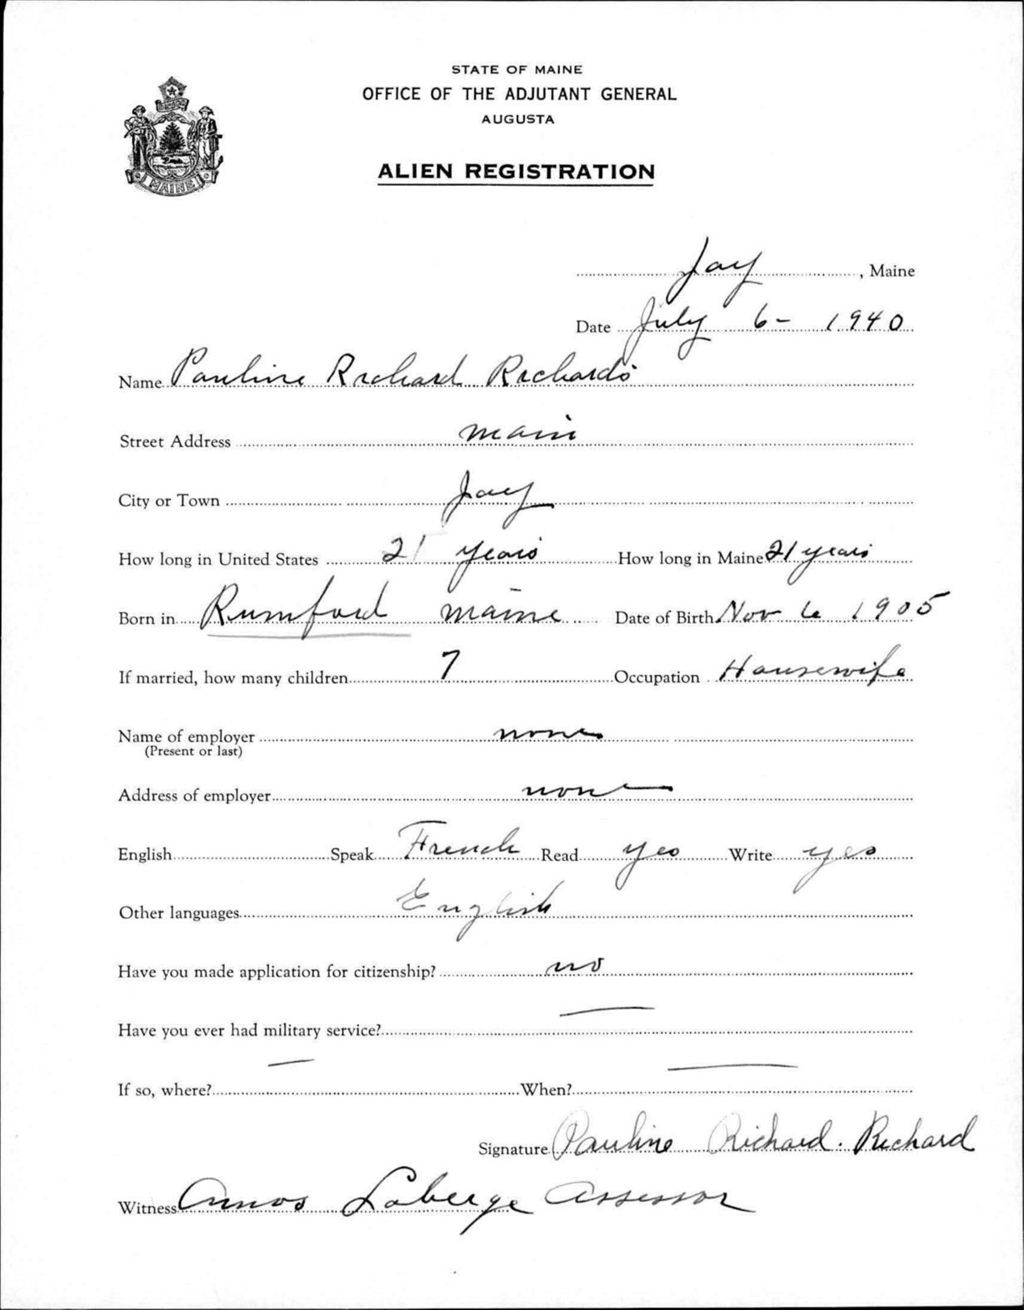 STATE OF MAINE
OFFICE OF THE ADJUTANT GENERAL
AUGUSTA
ALIEN REGISTRATION
MAINE
Jay, Maine
Date July 6- 1940
Name Pauline Richard Richards
Street Address Main
City or Town Jay
How long in United States 21 years How long in Maine 21 years
Born in Rumford Maine Date of Birth Nov 6 1905
If married, how many children 7 Occupation Housewife
Name of employer none
(Present or last)
Address of employer none
English Speak French Read yes Write yes
Other languages English
Have you made application for citizenship? no
Have you ever had military service? —
If so, where? — When? —
Signature Pauline Richard. Richard
Witness Amos Laberge Assessor